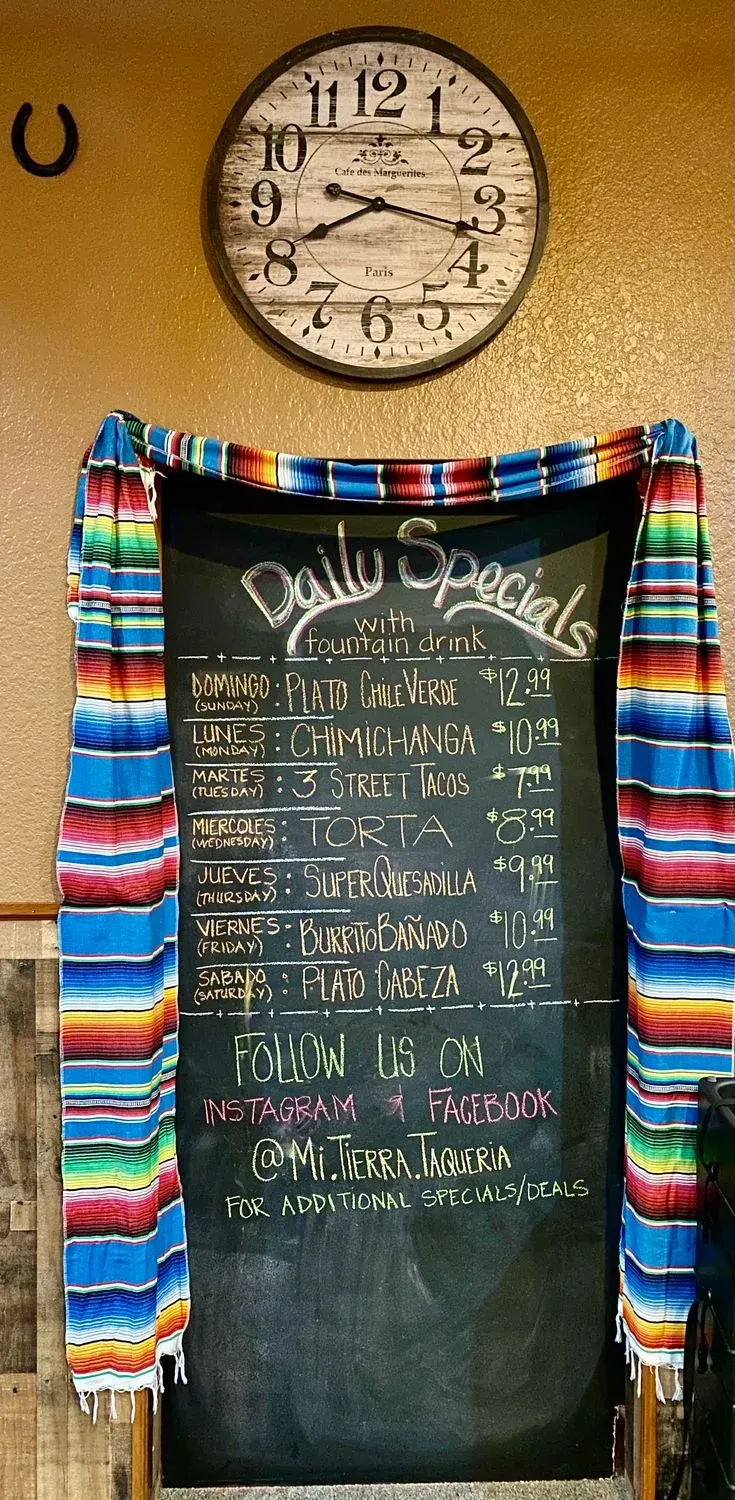 11 12 1
10 2
Cafe des Marguerites
9 3
8 4
Paris
7 6 5
Daily Specials
with
fountain drink
DOMINGO : PLATO CHILE VERDE $12.99
(SUNDAY)
LUNES : CHIMICHANGA $10.99
(MONDAY)
MARTES : 3 STREET TACOS $7.99
(TUESDAY)
MIERCOLES : TORTA $8.99
(WEDNESDAY)
JUEVES : SUPER QUESADILLA $9.99
(THURSDAY)
VIERNES : BURRITO BAÑADO $10.99
(FRIDAY)
SABADO : PLATO CABEZA $12.99
(SATURDAY)
FOLLOW US ON
INSTAGRAM & FACEBOOK
@MI.TIERRA.TAQUERIA
FOR ADDITIONAL SPECIALS/DEALS